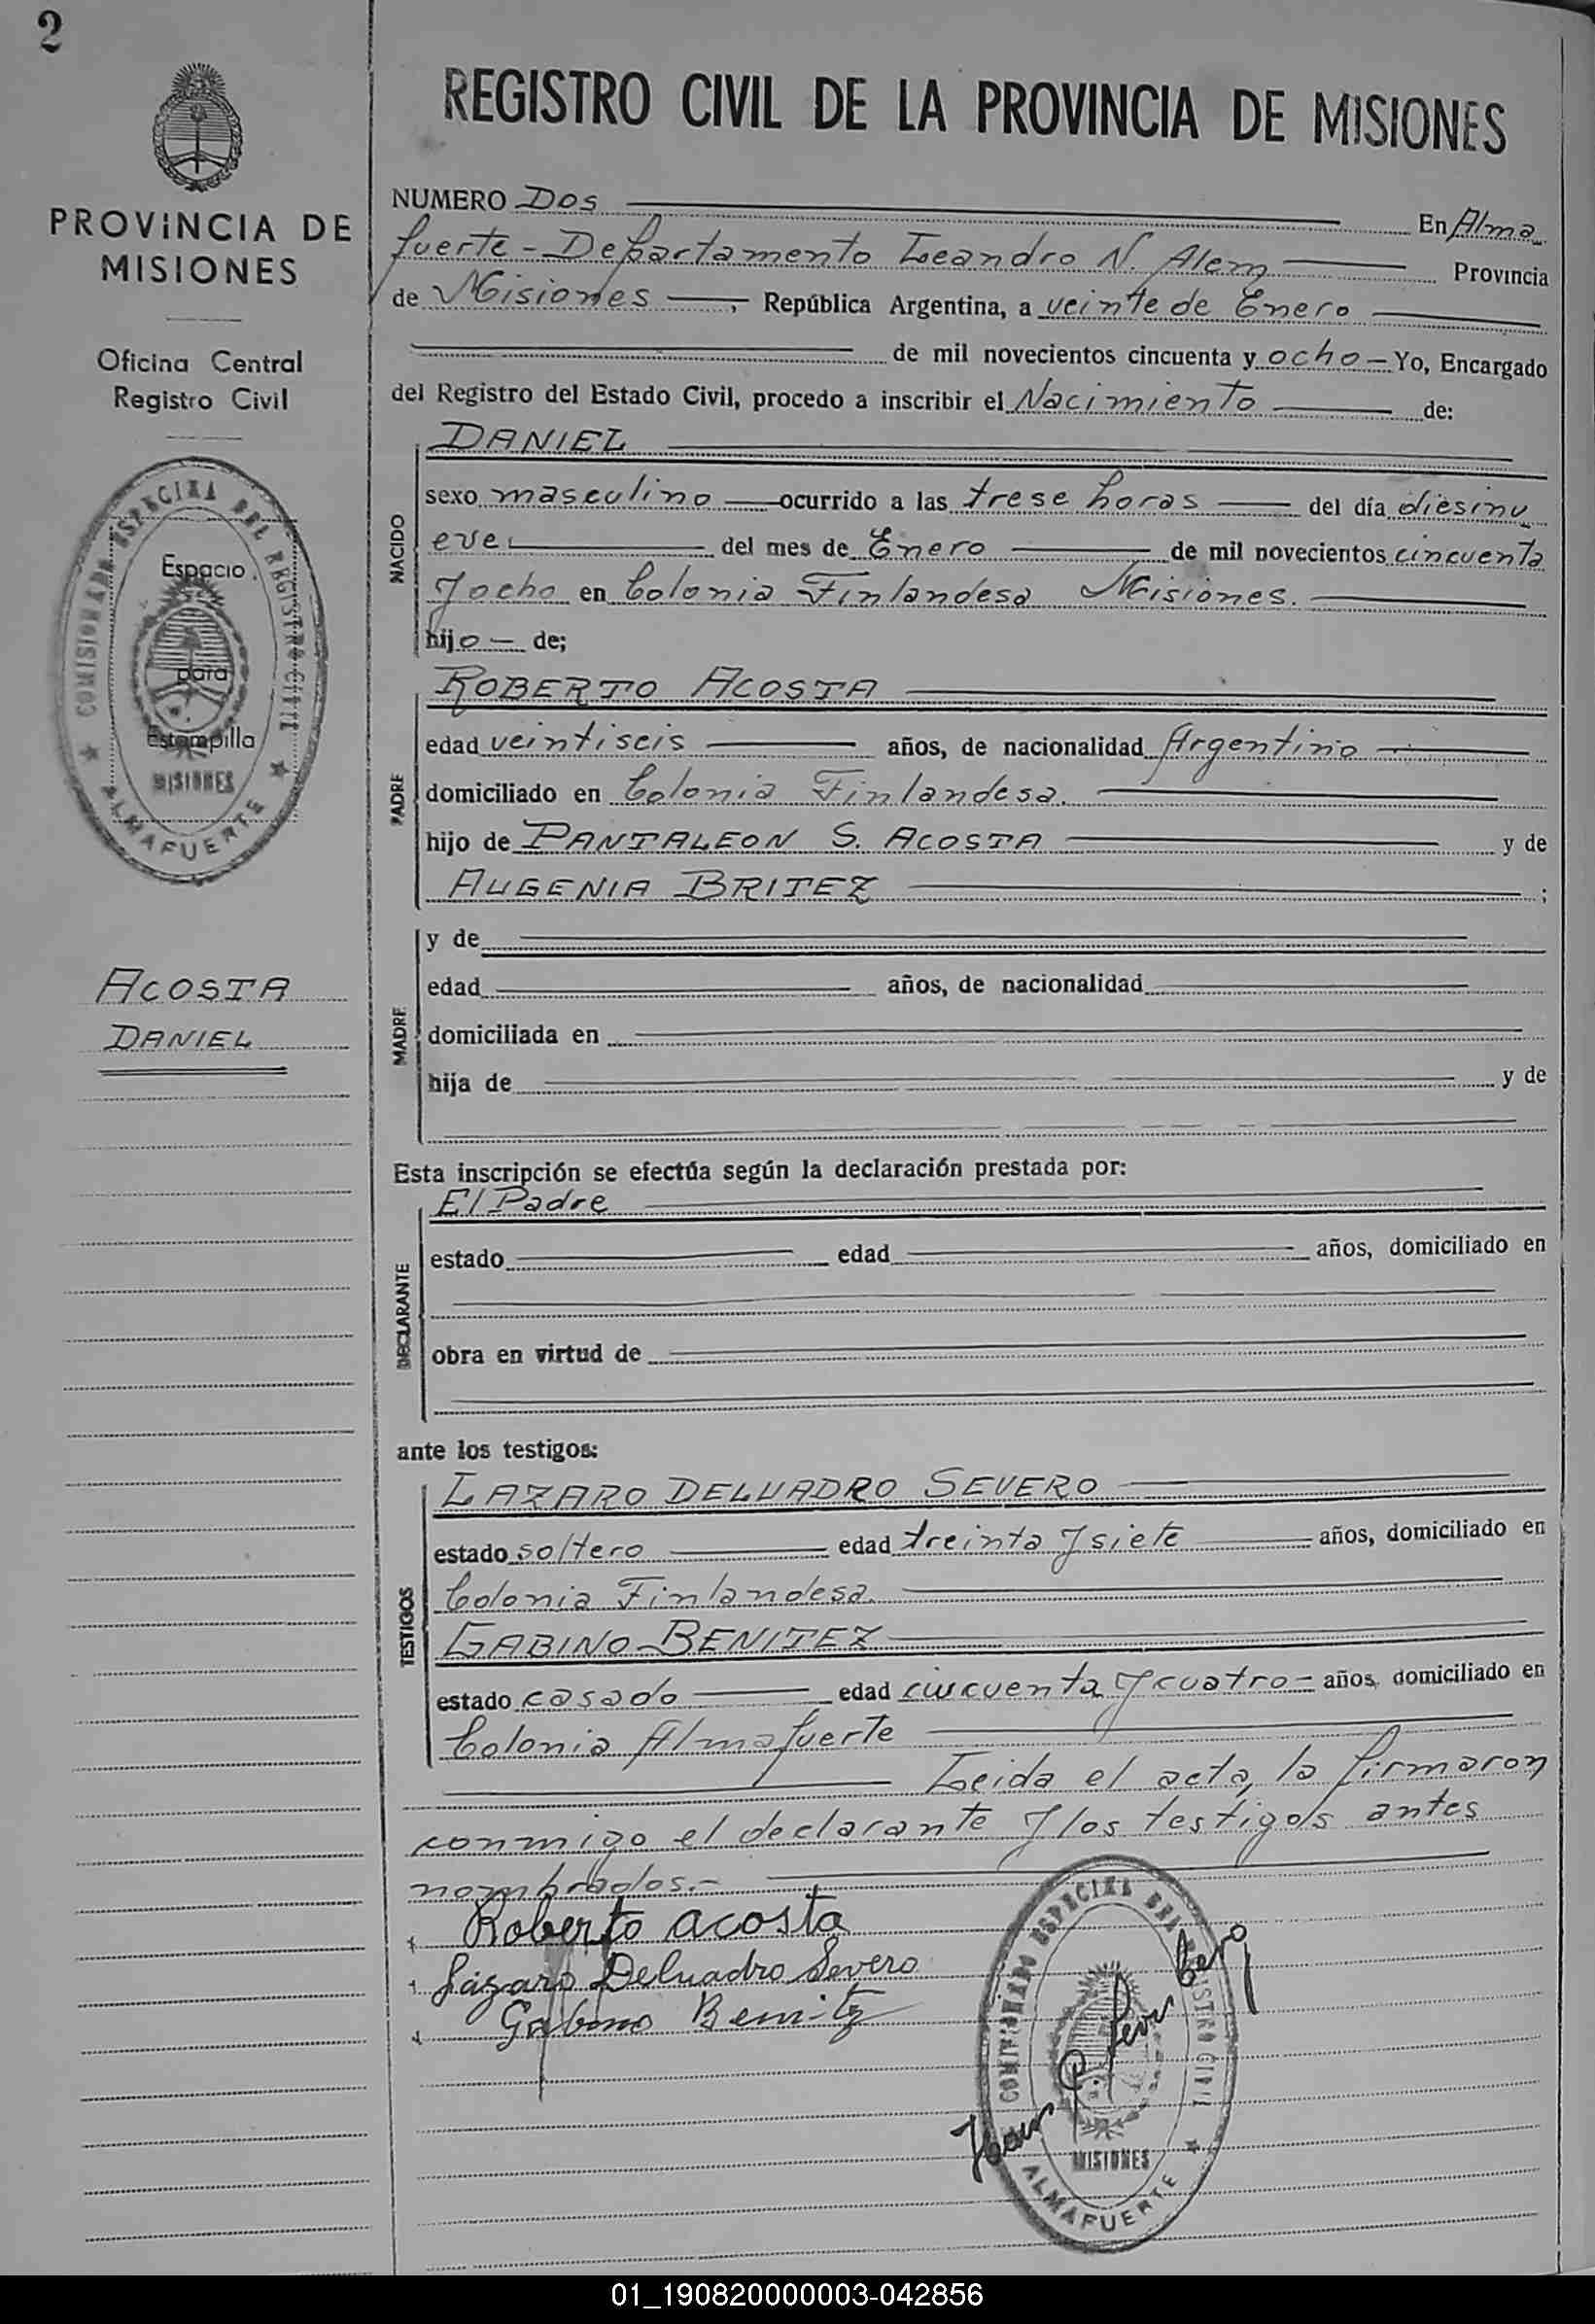 2
PROVINCIA DE
MISIONES
Oficina Central
Registro Civil
COMISIONADO ESPECIAL DEL REGISTRO CIVIL
Espacio
para
Estampilla
MISIONES
★ ALMAFUERTE ★
ACOSTA
DANIEL
REGISTRO CIVIL DE LA PROVINCIA DE MISIONES
NUMERO Dos En Alma
fuerte - Departamento Leandro N. Alem Provincia
de Misiones, República Argentina, a veinte de Enero
de mil novecientos cincuenta y ocho - Yo, Encargado
del Registro del Estado Civil, procedo a inscribir el Nacimiento de:
NACIDO
DANIEL
sexo masculino ocurrido a las trese horas del día diesinu
eve del mes de Enero de mil novecientos cincuenta
y ocho en Colonia Finlandesa Misiones.
hijo - de;
PADRE
ROBERTO ACOSTA
edad veintiseis años, de nacionalidad Argentino
domiciliado en Colonia Finlandesa.
hijo de PANTALEON S. ACOSTA y de
AUGENIA BRITEZ ;
MADRE
y de
edad años, de nacionalidad
domiciliada en
hija de y de
Esta inscripción se efectúa según la declaración prestada por:
DECLARANTE
El Padre
estado edad años, domiciliado en
obra en virtud de
ante los testigos:
TESTIGOS
LAZARO DELUADRO SEVERO
estado soltero edad treinta y siete años, domiciliado en
Colonia Finlandesa.
GABINO BENITEZ
estado casado edad cincuenta y cuatro - años, domiciliado en
Colonia Almafuerte
Leida el acta, la firmaron
conmigo el declarante y los testigos antes
nombrados.-
Roberto acosta
Lázaro Deluadro Severo
Gabino Benitz
COMISIONADO ESPECIAL DEL REGISTRO CIVIL
MISIONES
ALMAFUERTE ★
01_190820000003-042856